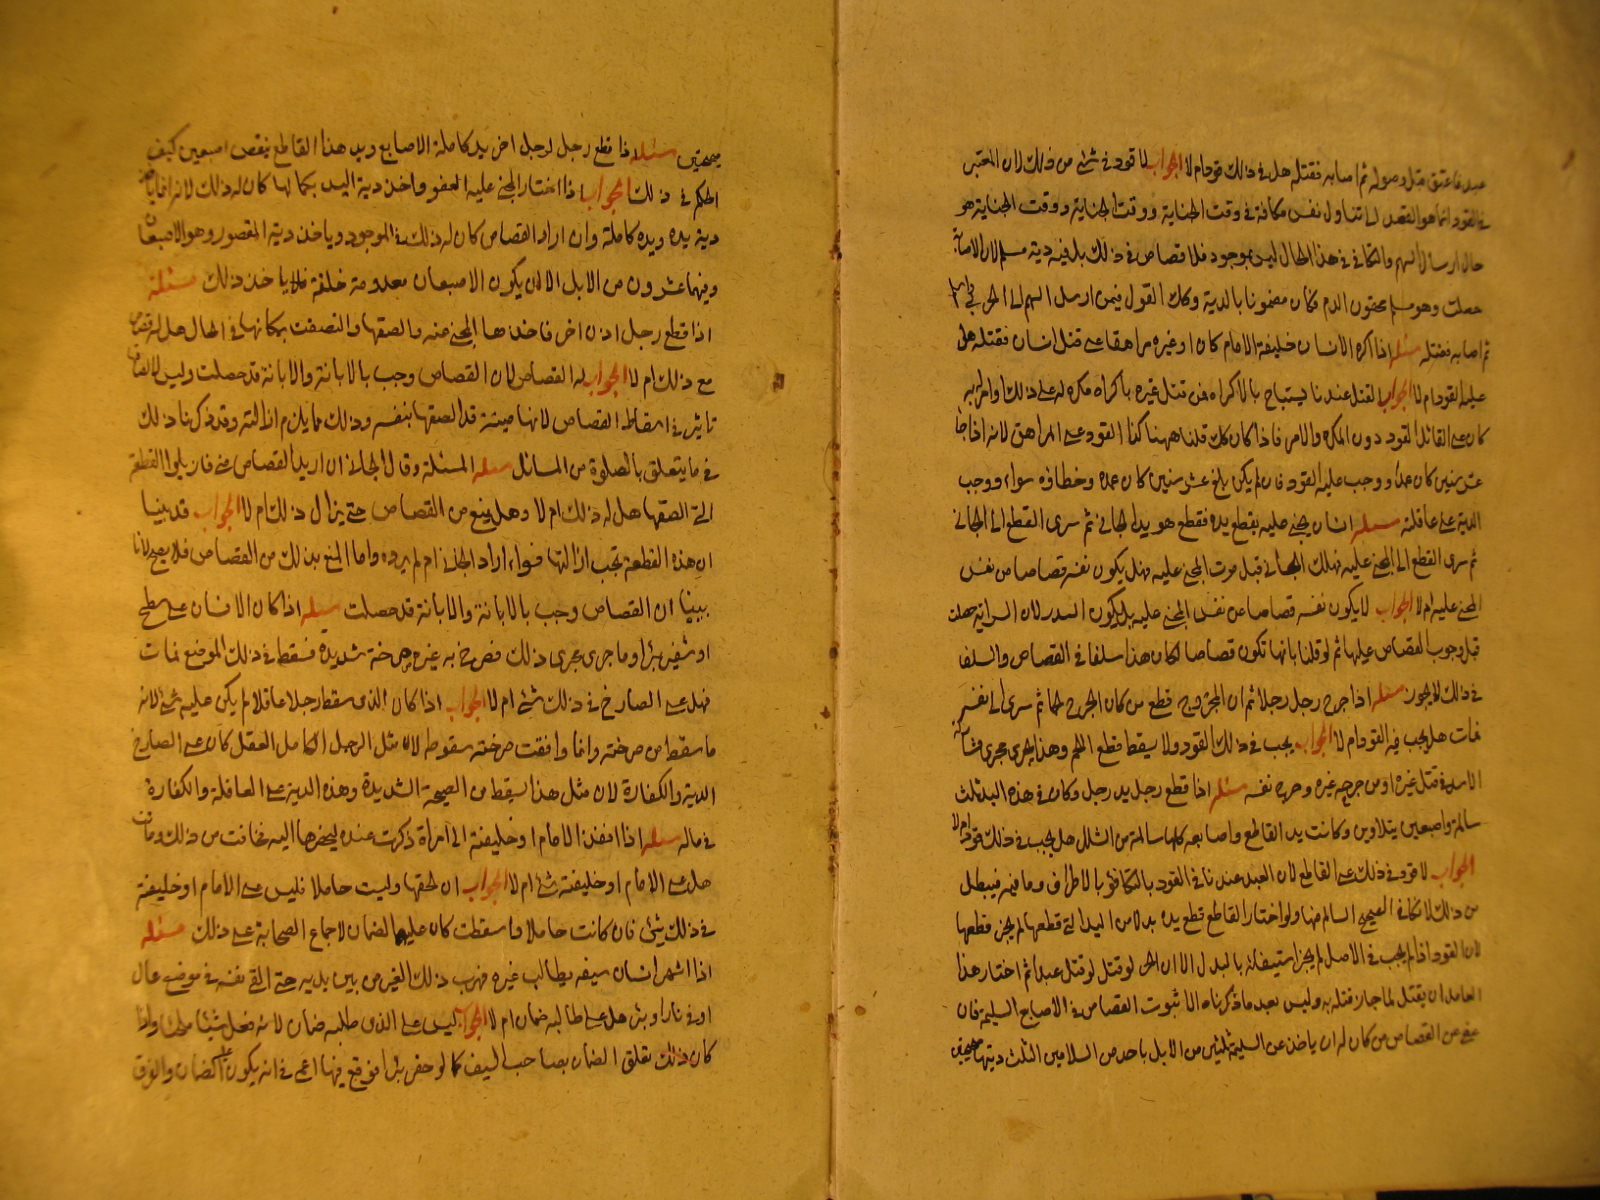 عبد فاعتق قبل وصوله ثم اصابه فقتله هل في ذلك قود ام لا الجواب لا قود في شئ من ذلك لان المعتبر
في القود انما هو القصد الى تناول نفس مكافة في وقت الجناية ووقت الجناية هو
حال ارسال السهم والتكافى في هذا الحال ليس بموجود فلا قصاص في ذلك بل فيه دية مسلم لان الاصابة
حصلت وهو مسلم محقون الدم فكان مضمونا بالدية وكك القول فيمن ارسل السهم الى الحربى
ثم اصابه فقتله مسئله اذا اكره الانسان خليفة الامام كان او غيره مراهقا على قتل انسان فقتله هل
عليه القود ام لا الجواب القتل عندنا لا يستباح بالاكراه فمن قتل غيره باكراه مكره له على ذلك او امر امر به
كان على القاتل القود دون المكره والامر فاذا كان كك قلنا ههنا كذا القود على المراهق لانه اذا جاز
عشر سنين كان عمدا ووجب عليه القود فان لم يكن بلغ عشر سنين كان عمده وخطاؤه سواء ووجب
الدية على عاقلته مسئله انسان يجنى عليه بقطع يده فقطع هو يد الجانى ثم سرى القطع الى الجانى
ثم سرى القطع الى المجنى عليه فهلك الجانى قبل موت المجنى عليه فهل يكون نفسه قصاصا من نفس
المجنى عليه ام لا الجواب لا يكون نفسه قصاصا عن نفس المجنى عليه بل يكون الهدر لان السراية حصلت
قبل وجوب القصاص عليها ثم لو قلنا بانها تكون قصاصا لكان هذا سلفا في القصاص والسلف
في ذلك لا يجوز مسئله اذا جرح رجل رجلا ثم ان المجروح قطع من كان الجرح لحما ثم سرى الى نفسه
فمات هل يجب فيه القود ام لا الجواب يجب في ذلك القود ولا يسقط قطع اللحم وهذا يجرى مجرى مشاركة
الاسد في قتل غيره او من جرحه غيره وجرح نفسه مسئله اذا قطع رجل يد رجل وكان في هذه اليد ثلث
سالمة واصبعين يتلاوين وكانت يد القاطع واصابعه كلها سالمة من الشلل هل يجب في ذلك قود ام لا
الجواب لا قود في ذلك على القاطع لان العبد عندنا في القود بالتكافؤ بالاطراف وما فيه فيبطل
من ذلك لا تكافي الصحيح السالم منها ولو اختار القاطع قطع يده بدلا من اليد التي قطعها لم يجز قطعها
لان القود اذا لم يجب في الاصل لم يجز استيفائه بالبدل الا ان الحر لو قتل لو قتل عبدا ثم اختار هذا
العامد ان يقتل لما جاز قتله به وليس بعد ما ذكرناه الا ثبوت القصاص في الاصابع السليمة فان
عفى عن القصاص من كان له ان ياخذ عن السليمة ثلثين من الابل ياخذ من السلامين الثلث ديتها صحيحتين
صحيحتين مسئله اذا قطع رجل لرجل اخر يد كاملة الاصابع ويد هذا القاطع ينقص اصبعين كيف
الحكم في ذلك الجواب اذا اختار المجنى عليه العفو واخذ دية اليد بكمالها كان له ذلك لانه انما ياخذ
دية يده ويده كاملة وان اراد القصاص كان له ذلك في الموجود وياخذ دية المقصور وهو الاصبعان
وفيهما عشرون من الابل الا ان يكون الاصبعان معدومة خلقة فلا ياخذ ذلك مسئله
اذا قطع رجل اذن اخر فاخذها المجنى عليه والصقها والتصقت بمكانها في الحال هل له قصاص
مع ذلك ام لا الجواب له القصاص لان القصاص وجب بالابانة والابانة قد حصلت وليس للالصاق
تاثير في اسقاط القصاص لانها ميتة قد الصقها بنفسه وذلك مما يلزم ازالته وقد ذكرنا ذلك
في ما يتعلق بالصلوة من المسائل مسئله المسئلة وقال الجانى ان اريد القصاص منى فازيلوا القطعة
التي الصقها هل له ذلك ام لا وهل يمنع من القصاص حتى يزال ذلك ام لا الجواب قد بينا
ان هذه القطعة تجب ازالتها سواء اراد الجانى ام لم يرده واما المنع بذلك من القصاص فلا يصح لانا
بينا ان القصاص وجب بالابانة والابانة قد حصلت مسئله اذا كان الانسان على سطح
او شفير بئر او ما جرى مجرى ذلك فصرخ به غيره صرخة شديدة فسقط في ذلك الموضع فمات
فهل على الصارخ في ذلك شئ ام لا الجواب اذا كان الذى سقط رجلا عاقلا لم يكن عليه شئ لانه
ما سقط من صرخته وانما وافقت صرخته سقوطه لان مثل الرجل الكامل العقل كان على الصارخ
الدية والكفارة لان مثل هذا يسقط من الصيحة الشديدة وهذه الدية على العاقلة والكفارة
في ماله مسئله اذا انفذ الامام او خليفته الى امراة ذكرت عنده ليحضرها اليه فخافت من ذلك وماتت
هل على الامام او خليفته شئ ام لا الجواب ان لحقها وليست حاملا فليس على الامام او خليفته
في ذلك شئ فان كانت حاملا واسقطت كان عليه الضمان لاجماع الصحابة على ذلك مسئله
اذا اشهر انسان سيفه يطالب غيره فهرب ذلك الغير من بين يديه حتى القى نفسه في موضع عال
او في نار او بئر هل على طالبه ضمان ام لا الجواب ليس على الذى طلبه ضمان لانه فعل شيئا ملجئا واذا
كان ذلك تعلق الضمان بصاحب السيف كما لو حفر بئرا فوقع فيها اعمى في انه يكون عليه الضمان والفرق